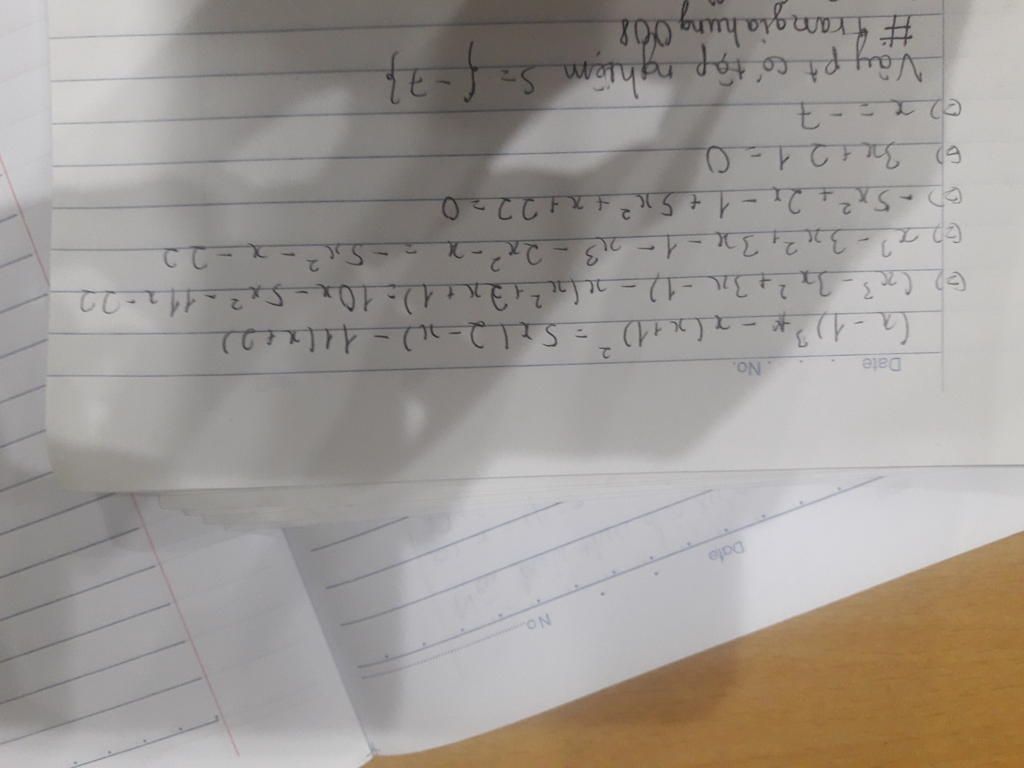 Date . . . No.
(x-1)³ - x(x+1)² = 5x(2-x) - 11(x+2)
(=) (x³ - 3x² + 3x - 1) - x(x² + 2x + 1) = 10x - 5x² - 11x - 22
(=) x³ - 3x² + 3x - 1 - x³ - 2x² - x = -5x² - x - 22
(=) -5x² + 2x - 1 + 5x² + x + 22 = 0
(=) 3x + 21 = 0
(=) x = -7
Vậy pt có tập nghiệm S = {-7}
# trangiahung008
No
Date